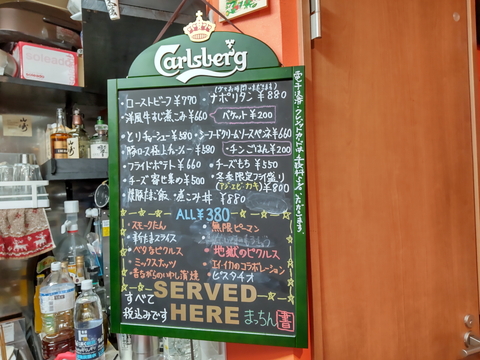 Carlsberg
・ローストビーフ ¥770
・ナポリタン ¥880
・洋風牛すじ煮こみ ¥660
バケット ¥200
・とりチャーシュー ¥580
・シーフードクリームソースペンネ ¥660
・豚ロース極上チャーシュー ¥580
・チンごはん ¥200
・フライドポテト ¥660
・チーズもち ¥550
・チーズ寄せ集め ¥500
・冬季限定フライ盛り
(アジ・エビ・カキ) ¥800
・煮こみ丼 ¥880
ALL ¥380
・スモークたん
・無限ピーマン
・新たまスライス
・ベタなピクルス
・地獄のピクルス
・ミックスナッツ
・エイ・イカのコラボレーション
・昔ながらのいわし濱焼
・ピスタチオ
SERVED
HERE
すべて
税込みです
まっちん 書